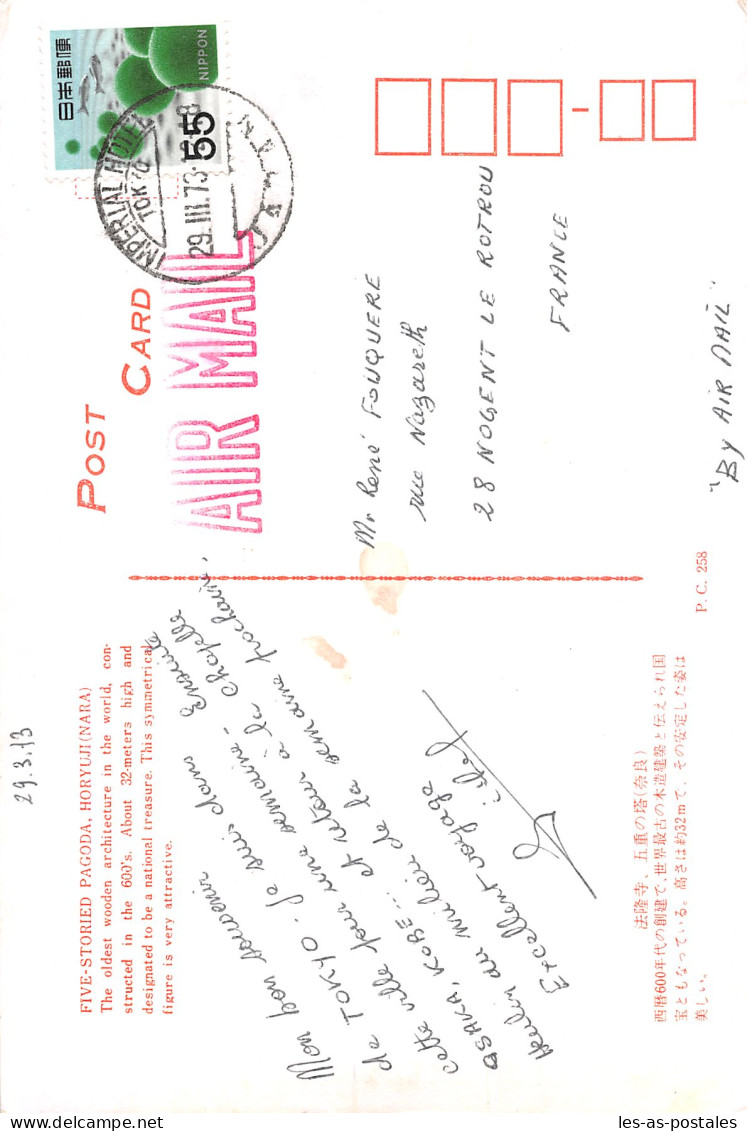 29.3.73
FIVE-STORIED PAGODA, HORYUJI (NARA)
The oldest wooden architecture in the world, con-
structed in the 600's. About 32-meters high and
designated to be a national treasure. This symmetrical
figure is very attractive.
Mon bon souvenir
de TOKYO. Je suis dans
cette ville pour une semaine - Ensuite
OSAKA, KOBE... et retour à la Chapelle
au milieu de la semaine prochaine.
Excellent voyage
法隆寺、五重の塔(奈良)
西暦600年代の創建で、世界最古の木造建築と伝えられ国
宝ともなっている。高さは約32mで、その安定した姿は
美しい。
POST CARD
日本郵便
NIPPON
55
IMPERIAL HOTEL
TOKYO
29.III.73
AIR MAIL
Mr René FOUQUERE
rue Nazareth
28 NOGENT LE ROTROU
FRANCE
"BY AIR MAIL"
P.C. 258
les-as-postales